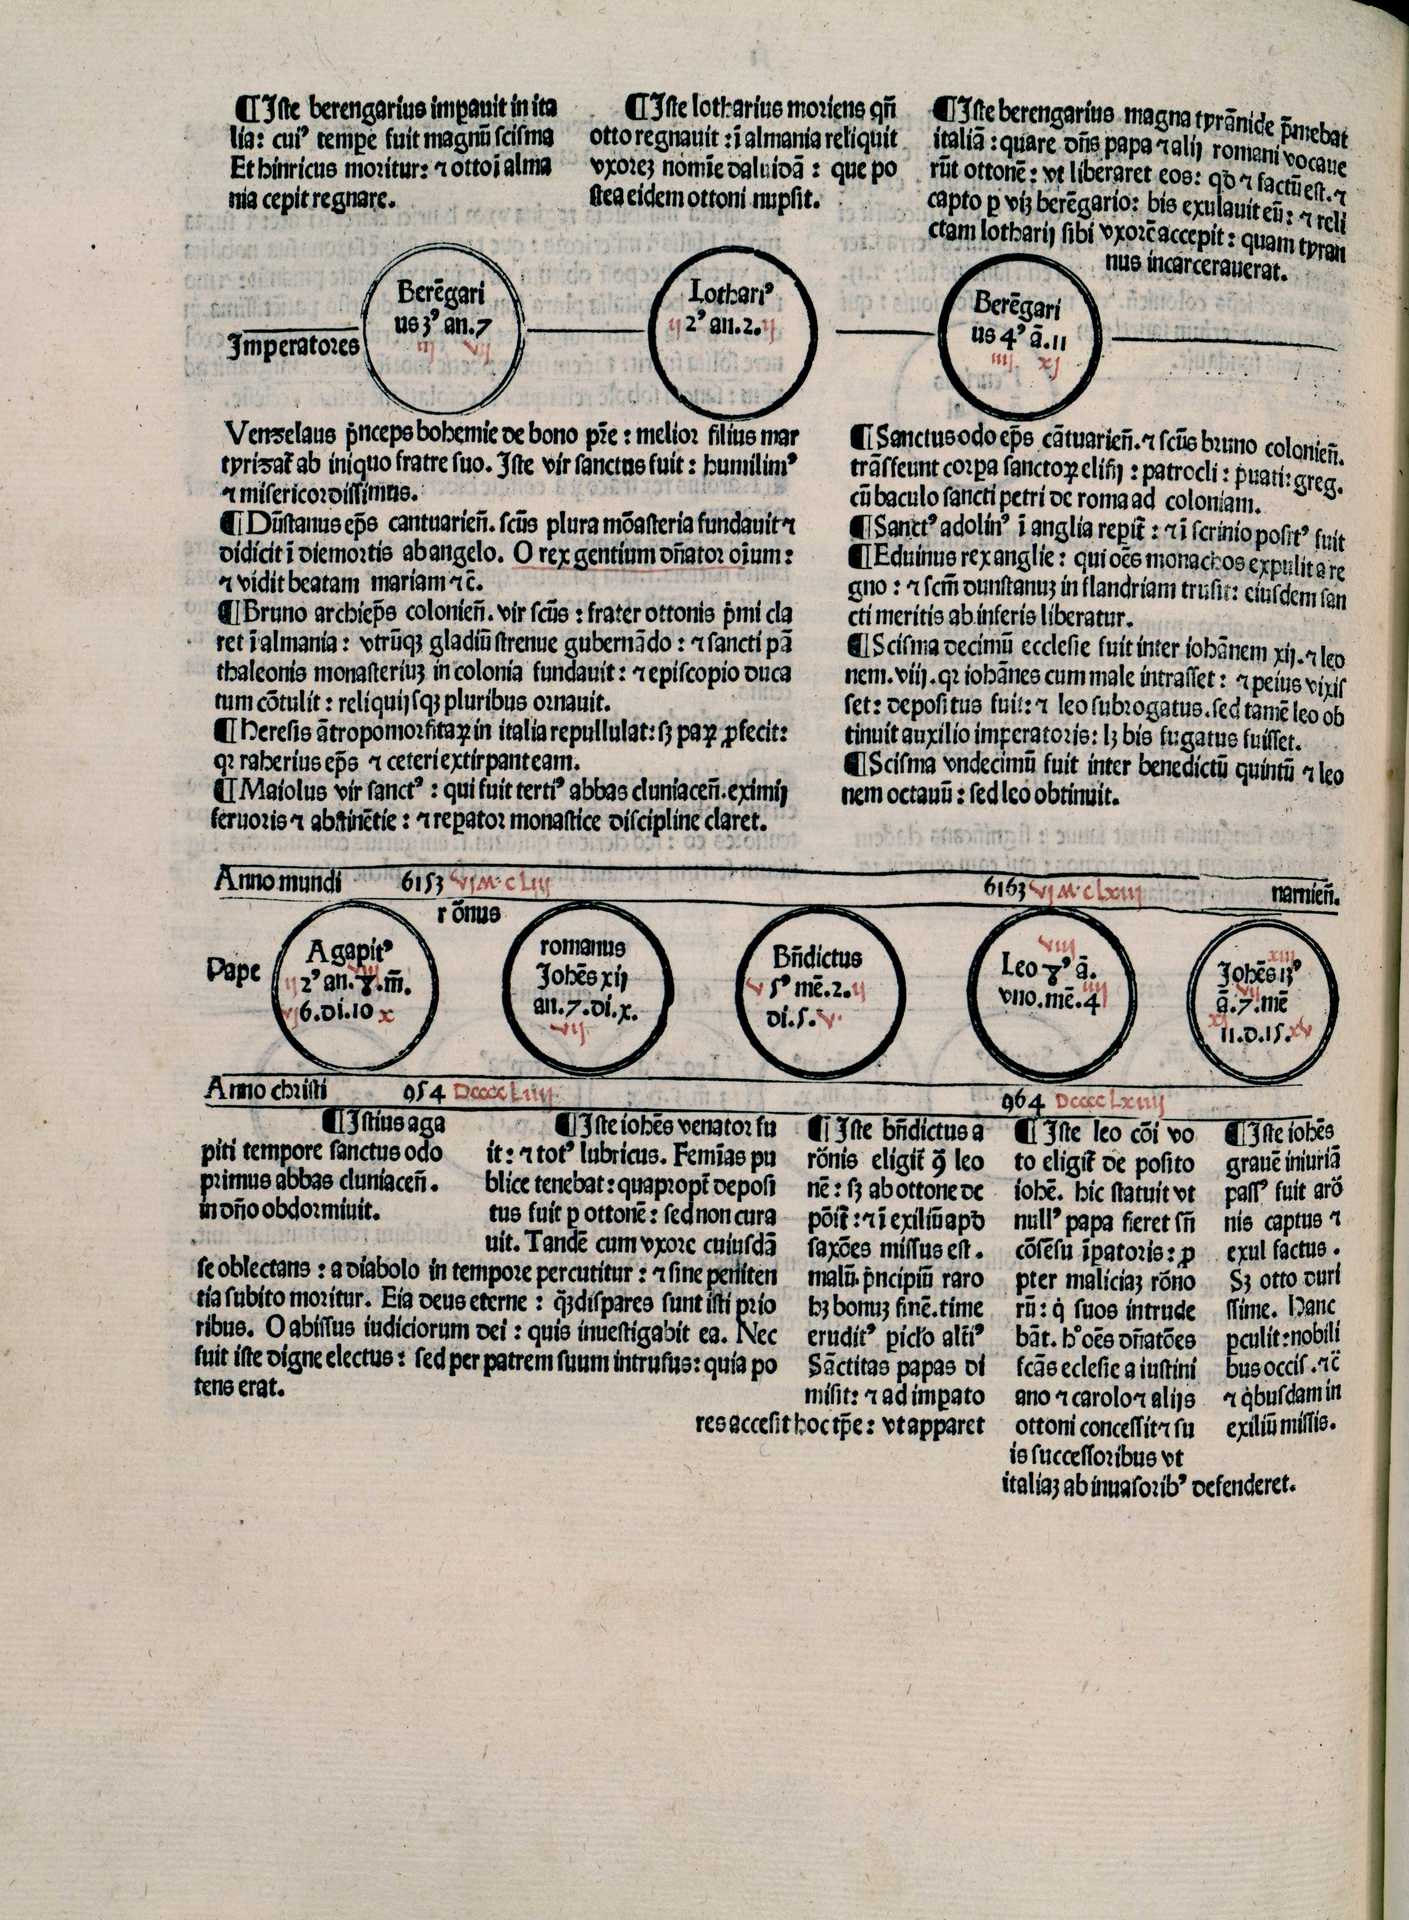 ¶Iste berengarius impauit in ita
lia: cuiꝰ tempe fuit magnũ scisma
Et hinricus moritur: ⁊ otto ĩ alma
nia cepit regnare.
¶Iste lotharius moriens qñ
otto regnauit: ĩ almania reliquit
vxoreʒ nomĩe daluidã: que po
stea eidem ottoni nupsit.
¶Iste berengarius magna tyrãnide p̃mebat
italiã: quare dñs papa ⁊ alij romani vocaue
rũt ottonẽ: vt liberaret eos: qđ ⁊ factũ est. ⁊
capto p viʒ berẽgario: bis exulauit eũ: ⁊ reli
ctam lotharij sibi vxorẽ accepit: quam tyran
nus incarcerauerat.
Imperatores
Berẽgari
us 3ꝰ an. 7
iij vij
Lothariꝰ
ij 2ꝰ an. 2. ij
Berẽgari
us 4ꝰ ã. 11
iiij xj
Venzelaus p̃nceps bohemie de bono pr̃e: melior filius mar
tyrizat̃ ab iniquo fratre suo. Iste vir sanctus fuit: humilimꝰ
⁊ misericordissimus.
¶Dũstanus ep̃s cantuarieñ. scũs plura mõasteria fundauit ⁊
didicit ĩ die mortis ab angelo. O rex gentium dñator oĩum:
⁊ vidit beatam mariam ⁊c̃.
¶Bruno archiep̃s colonieñ. vir scũs: frater ottonis p̃mi cla
ret ĩ almania: vtrũqʒ gladiũ strenue gubernãdo: ⁊ sancti pã
thaleonis monasteriuʒ in colonia fundauit: ⁊ episcopio duca
tum cõtulit: reliquijsqʒ pluribus ornauit.
¶Heresis ãtropomorfitaꝝ in italia repullulat: sʒ paꝝ ꝓfecit:
qꝛ raherius ep̃s ⁊ ceteri extirpant eam.
¶Maiolus vir sanctꝰ: qui fuit tertiꝰ abbas cluniaceñ. eximij
feruoris ⁊ abstinẽtie: ⁊ repator monastice discipline claret.
¶Sanctus odo ep̃s cãtuarieñ. ⁊ scũs bruno colonieñ.
trãsseunt corpa sanctoꝝ elifij: patrocli: p̃uati: greg.
cũ baculo sancti petri de roma ad coloniam.
¶Sanctꝰ adolinꝰ ĩ anglia repit̃: ⁊ ĩ scrinio positꝰ fuit
¶Eduinus rex anglie: qui oẽs monachos expulit a re
gno: ⁊ scm̃ dunstanuʒ in flandriam trusit: eiusdem san
cti meritis ab inferis liberatur.
¶Scisma decimũ ecclesie fuit inter iohãnem xij. ⁊ leo
nem. viij. qꝛ iohãnes cum male intrasset: ⁊ peius vixis
set: depositus fuit: ⁊ leo subrogatus. sed tamẽ leo ob
tinuit auxilio imperatoris: lʒ bis fugatus fuisset.
¶Scisma vndecimũ fuit inter benedictũ quintũ ⁊ leo
nem octauũ: sed leo obtinuit.
Anno mundi 6153 vjM·cLiij 6163 vjM·cLxiij narnieñ.
rõnus
Pape
Agapitꝰ viij
ij 2ꝰ an. 8. m̃.
vj 6. di. 10 x
romanus
Johẽs xij
an. 7. di. x.
vij
Bñdictus
v 5ꝰ mẽ. 2. ij
di. 5. v.
viij
Leo 8ꝰ ã.
vno. mẽ. 4 iiij
xiij
Johẽs 13ꝰ
ã. 7. mẽ vij
xj 11. d. 15. xv
Anno christi 954 DccccLiiij 964 DccccLxiiij
¶Istius aga
piti tempore sanctus odo
primus abbas cluniaceñ.
in dño obdormiuit.
¶Iste iohẽs venator fu
it: ⁊ totꝰ lubricus. Femĩas pu
blice tenebat: quapropt̃ deposi
tus fuit p ottonẽ: sed non cura
uit. Tandẽ cum vxore cuiusdã
se oblectans: a diabolo in tempore percutitur: ⁊ sine peniten
tia subito moritur. Eia deus eterne: q̃ʒ dispares sunt isti prio
ribus. O abissus iudiciorum dei: quis inuestigabit ea. Nec
fuit iste digne electus: sed per patrem suum intrusus: quia po
tens erat.
¶Iste bñdictus a
rõnis eligit̃ ꝯ̃ leo
nẽ: sʒ ab ottone de
põit̃: ⁊ ĩ exiliũ apđ
saxões missus est.
malũ p̃ncipiũ raro
hʒ bonuʒ finẽ. time
eruditꝰ piclo alt̃iꝰ
Sãctitas papas di
misit: ⁊ ad impato
res accesit hoc tp̃e: vt apparet
¶Iste leo cõi vo
to eligit̃ de posito
iohẽ. hic statuit vt
nullꝰ papa fieret sñ
cõsẽsu ĩpatoris: ꝓ
pter maliciaʒ rõno
rũ: q̇ suos intrude
bãt. hꝰ oẽs dñatões
scãs eclesie a iustini
ano ⁊ carolo ⁊ alijs
ottoni concessit ⁊ su
is successoribus vt
italiaʒ ab inuasoribꝰ defenderet.
¶Iste iohẽs
grauẽ iniuriã
passꝰ fuit a rõ
nis captus ⁊
exul factus.
Sʒ otto duri
ssime. Hanc
pculit: nobili
bus occis. ⁊c̃
⁊ q̇busdam in
exiliũ missis.